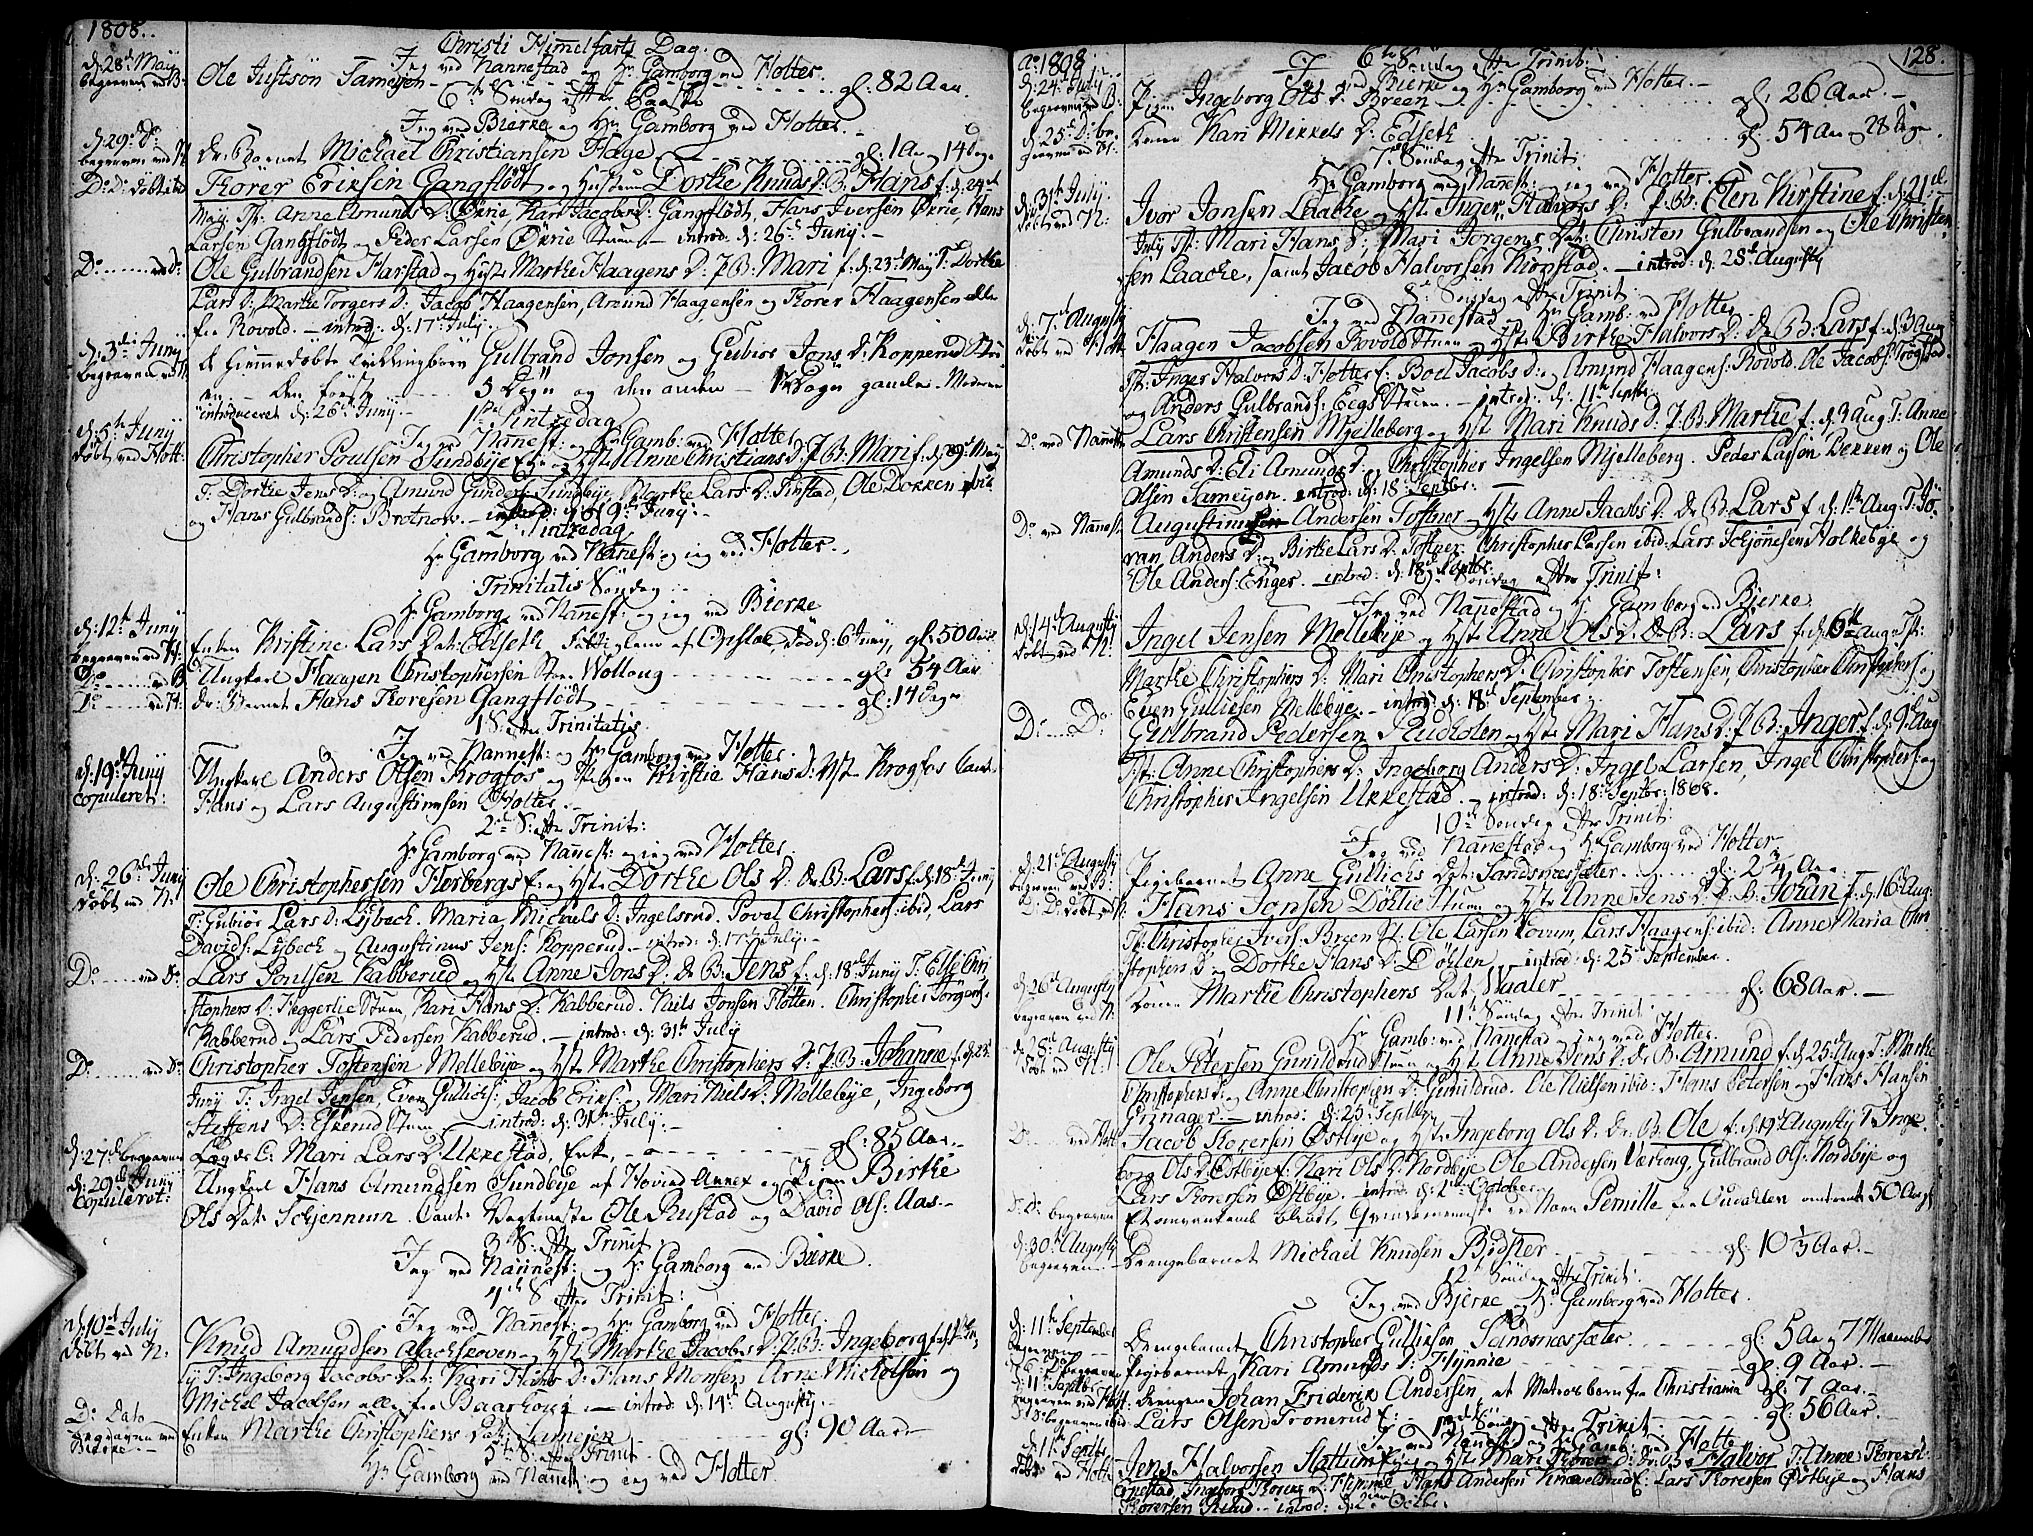 1808.
Christi Himmelfarts Dag.
d: 28de Maÿ Jeg ved Nannestad og Hr Gamborg ved Holter.
begraven ved B: Ole Justsön Tameyen gl: 82 Aar.
6te Söndag efter Paaske
Jeg ved Bierke og Hr Gamborg ved Holter.
d: 29de Do
begraven ved N. Dr: Barnet Michael Christiansen Hage gl: 1 Aar og 14 Dage
Do: Do: döbt ibid Thorer Eriksen Gangflödt og Hustrue Dorthe Knuds D: B: Hans f: d: 24de
Maÿ. T: Anne Amunds D: Økrie, Kari Jacobs D: Gangflödt, Hans Iversen Økrie, Hans
Larsen Gangflödt og Peder Larsen Økrie Stuen – introd: d: 26de Junÿ.
Do ved Do Ole Gulbrandsen Harstad og Hst: Marthe Haagens D: P. B: Mari f: d: 23de Maÿ T: Dorthe
Lars D:, Marthe Torgers D: Jacob Haagensen, Amund Haagensen og Thorer Haagensen alle
fra Rovold. – introd: d: 17de Julÿ.
d: 3die Junÿ
begraven ved N. de hjemmedöbte tvillingbörn Gulbrand Jonsen og Gubiör Jons D: Kopperud Stu-
en – den förste 3 Dage og den anden – 14 Dage gamle. Moderen
introduceret d: 26de Junÿ.
1ste Pintzedag
d: 5te Junÿ Jeg ved Nannest: og Hr Gamb: ved Holter
döbt ved Holt: Christopher Poulsen Sundbye Eye og Hst: Anne Christians D: P. B: Mari f: d: 29de Maÿ
T: Dorthe Jens D: og Amund Gunders: Sundbye, Marthe Lars D: Tinstad, Ole Dokken ibid
og Hans Gulbrands: Brotnow. – introd: d: 19de Junÿ.
2den Pintzedag
Hr Gamborg ved Nannest: og jeg ved Holter.
Trinitatis Söndag.
Hr Gamborg ved Nannest: og jeg ved Bierke
d: 12te Junÿ
begraven ved N: Enken Kristine Lars Dat: Edseth Fattiglem af Opstad, död d: 6te Junÿ, gl: 50 Aar
Do ved B Ungkarl Haagen Christophersen Store Wolloug gl: 54 Aar.
Do ved N: Dr: Barnet Hans Thoresen Gangflödt gl: 14 Dage
1 S: efter Trinitatis.
Jeg ved Nannest: og Hr Gamborg ved Holter.
d: 19de Junÿ
copuleret: Ungkarl Anders Olsen Krogfos og Pigen Kirstie Hans D: Hst: Krogfos Caut.
Hans og Lars Augustinusen Holter.
2den S: efter Trinit:
Hr Gamborg ved Nannest: og jeg ved Holter.
d: 26de Junÿ
döbt ved N: Ole Christophersen Herbergs Eye og Hst: Dorthe Ols D: Dr: B: Lars f: d: 18de Junÿ
T: Gubiör Lars D: Lÿbeck. Maria Michaels D: Ingelsrud. Povel Christophers: ibid, Lars
Davids: Lÿbeck og Augustinus Jens: Kopperud – introd: d: 17de Julÿ.
Do ved Do Lars Poulsen Kabberud og Hst: Anne Jons D: Dr: B: Jens f: d: 18de Junÿ T: Elsi Chri
stophers D: Heggerlie Stuen, Kari Hans D: Kabberud. Niels Jonsen Holten. Christopher Jörgens:
Kabberud og Lars Pedersen Kabberud. – introd: d: 31te Julÿ
Do ved Do Christopher Toftensen Mellebye og Hst: Marthe Christophers D: P. B: Johanne f: d: 23de
Junÿ T: Ingel Jensen, Even Gullichs: Jacob Eriks: og Mari Niels D: Mellebye, Ingeborg
Steffens D: Eskerud Stuen. – introd: d: 31te Julÿ.
d: 27de begraven Lægds L: Mari Lars D: Ukkestad, Enke, gl: 85 Aar.
d: 29de Junÿ
copuleret: Ungkarl Hans Amundsen Sundbye af Hovind Annex og Pigen Birthe
Ols Dat: Schjennum. Caut: Vagtmester Ole Rustad og David Ols: Aas.
3de S: efter Trinit
Jeg ved Nannest: og Hr Gamborg ved Bierke.
4de S: efter Trinit:
Jeg ved Nannest: og Hr Gamborg ved Holter.
d: 10de Julÿ
döbt ved N. Knud Amundsen Aachskoven og Hst: Marthe Jacobs D: P. B: Ingeborg f: d: 1ste Ju-
lÿ T: Ingeborg Jacobs Dat: Kari Hans D: Hans Monsen, Arne Michelsen og
Michel Jacobsen alle fra Baarhoug. – introd: d: 14de Augustÿ.
Do Dato
begraven ved Bierke Enken Marthe Christophers Dat: Tameyen gl: 90 Aar
5te S: efter Trinit
Hr Gamborg ved Nannest: og jeg ved Holter
128.
Ao 1808.
6te Söndag efter Trinit:
d: 24de Julÿ Jeg ved Bierke og Hr Gamborg ved Holter.
begraven ved B: Pigen Ingeborg Ols D: Breen gl: 26 Aar.
d: 25de Do begraven ved N: Konen Kari Mikkels D: Edseth gl: 54 Aar og 28 Dage.
7de Söndag efter Trinit:
Hr Gamborg ved Nannest: og jeg ved Holter.
d: 31te Julÿ
döbt ved N: Iver Jonsen Laache og Hst: Inger Halvors D: P. B: Elen Kirstine f: d: 21de
Julÿ T: Mari Hans D:, Mari Jörgens Dat: Christen Gulbrandsen og Ole Christen
sen Laache, samt Jacob Halvorsen Kiönstad. – introd: d: 28de Augustÿ
8de Söndag efter Trinit:
Jeg ved Nannestad og Hr Gamb: ved Holter
d: 7de Augustÿ
döbt ved Holt: Haagen Jacobsen Rovold Stuen og Hst: Birthe Halvors D: Dr: B: Lars f: d: 3 Aug
T: Inger Halvors D: Holter f: Boel Jacobs D: og Amund Haagens: Rovold. Ole Jacobs: Trögstad
og Anders Gulbrands: Eegs Stuen. – introd: d: 11te Septbr.
Do ved Nannest: Lars Christensen Mjelleberg og Hst: Mari Knuds D: P. B: Marthe f: d: 3 Aug T: Anne
Amunds D: Eli Amunds D: og Christopher Ingelsen Mjelleberg. Peder Larsön Dekken og Ole
Olsen Tameyen. introd: d: 18de Septbr.
Do ved Nannest: Augustinus Andersen Toftner og Hst: Anne Jacobs D: Dr: B: Lars f: d: 1ste Aug: T: Jö-
ran Anders D: og Birthe Lars D: Toftner. Christopher Larsen ibid: Lars Schjönesen Holkebye og
Ole Anders: Enger. – introd: d: 18de Septbr.
9de Söndag efter Trinit:
Jeg ved Nannestad og Hr Gamborg ved Bjerke
d: 14de Augustÿ
döbt ved N: Ingel Jensen Mellebye og Hst: Anne Ols D: Dr: B: Lars f: d: 6te August:
Marthe Christophers D: Mari Christophers D: Christopher Toftensen, Christopher Christophers: og
Even Gulliksen Mellebye. – introd: d: 18de September.
Do Do Gulbrand Pedersen Rudholen og Hst: Mari Hans D: P. B: Inger f: d: 9de Aug
T: Anne Christophers D: Ingeborg Anders D: Ingel Larsen, Ingel Christophers: og
Christopher Ingelsen Ukkestad. – introd: d: 18de Septbr: 1808.
10de Söndag efter Trinit:
Jeg ved Nannestad og Hr Gamborg ved Holter
d: 21de Augustÿ
begraven ved B: Pigebarnet Anne Gulichs Dat: Sandsnessæter gl: 2 3/4 Aar
D: D: döbt ved N. Hans Jonsen Döhlie Stuen og Hst: Anne Jens D: D: B: Johan f: d: 16 Aug:
T: Christopher Ivers: Breen f: Ole Larsen Lovum, Lars Haagens: ibid: Anne Maria Chri
stophers D: og Dorthe Hans D: Döhlen – introd: d: 25de September.
d: 26de Augustÿ
begraven ved N: Konen Marthe Christophers Dat: Waaler gl: 68 Aar.
11te Söndag efter Trinit:
Hr Gamb: ved Nannestad og jeg ved Holter
d: 28de Augustÿ
döbt ved N: Ole Petersen Gunildrud Stuen og Hst: Anne Jens D: Dr: B: Amund f: d: 25de Aug T: Marthe
Christophers D: og Anne Christophers D: Gunildrud. Ole Nielsen ibid: Hans Petersen og Hans Hansen
Grinager. – introd: d: 25: Septbr.
D: ved Holt: Jacob Thoresen Østbye og Hst: Ingeborg Ols D: Dr: B: Ole f: d: 19de Augustÿ T: Inge
borg Ols D: Østbye f: Kari Ols D: Nordbye Ole Andersen Værhoug, Gulbrand Ols: Nordbye og
Lars Thoresen Østbye. – introd: d: 2den October.
D: D: begraven Et omvankende blindt Qvindemenneske ved Navn Pernille fra Oudahlen omtrent 50 Aar gl:
d: 30te Augustÿ
begraven – Drengebarnet Michael Knudsen Bidtler gl: 10 1/3 Aar.
12te Söndag efter Trinit:
Jeg ved Bjerke og Hr Gamborg ved Holter.
d: 11te September
begraven Drengebarnet Christopher Gulliksen Sandsnessæter gl: 5 Aar og 7 Maaneder
D: D: begraven Pigebarnet Kari Amunds D: Flynnie gl: 9 Aar.
d: 11te Septbr
begraven ved Holt: Drengen Johan Friderik Andersen, et Matrosbarn fra Christiania gl: 7 Aar.
D: D: begraven ibid: Lars Olsen Tronerud E: gl: 56 Aar
13de Söndag efter Trinit
Jeg ved Nannest: og Hr Gamb: ved Holter
döbt ved Holt: Jens Halvorsen Hattum Eye og Hst: Mari Thorers D: Dr: B: Halvor T: Anne Thorers D:
Opestad, Ingeborg Thorers D: Hemnæs Hans Andersen E: Lars Thoresen Østbye og Hans
Thoresen – introd: d: 2den Octbr.